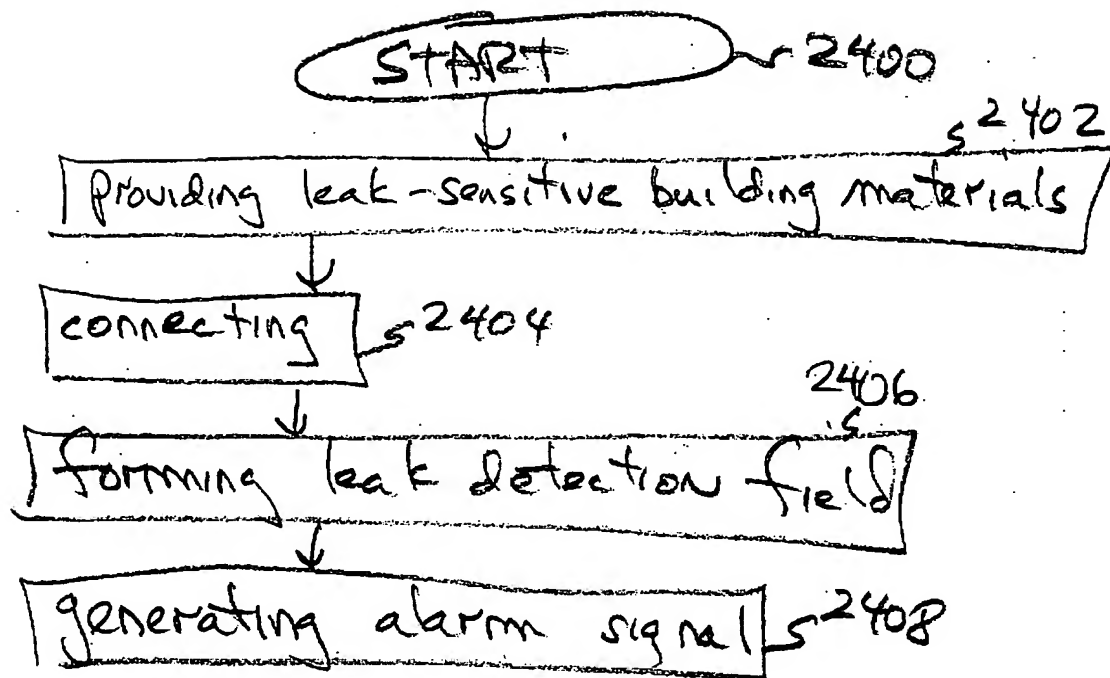 START 2400
2402
providing leak-sensitive building materials
connecting 2404
2406
forming leak detection field
generating alarm signal 2408